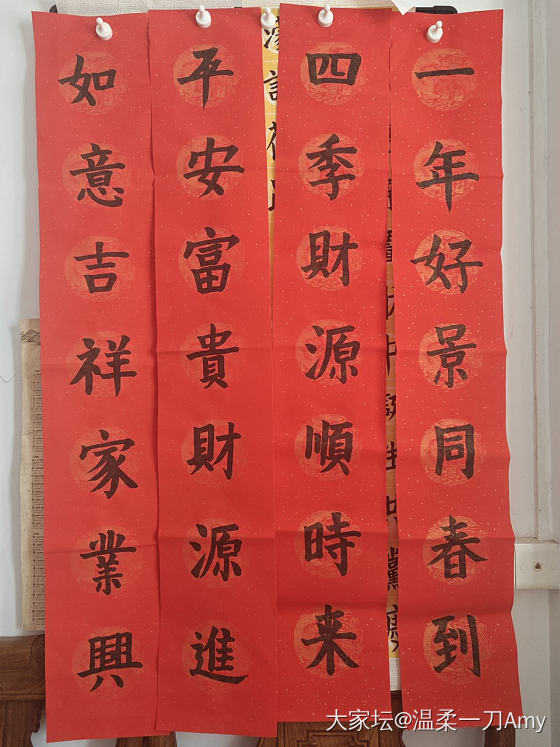 一年好景同春到
四季財源順時来
平安富貴財源進
如意吉祥家業興
大家坛@温柔一刀Amy